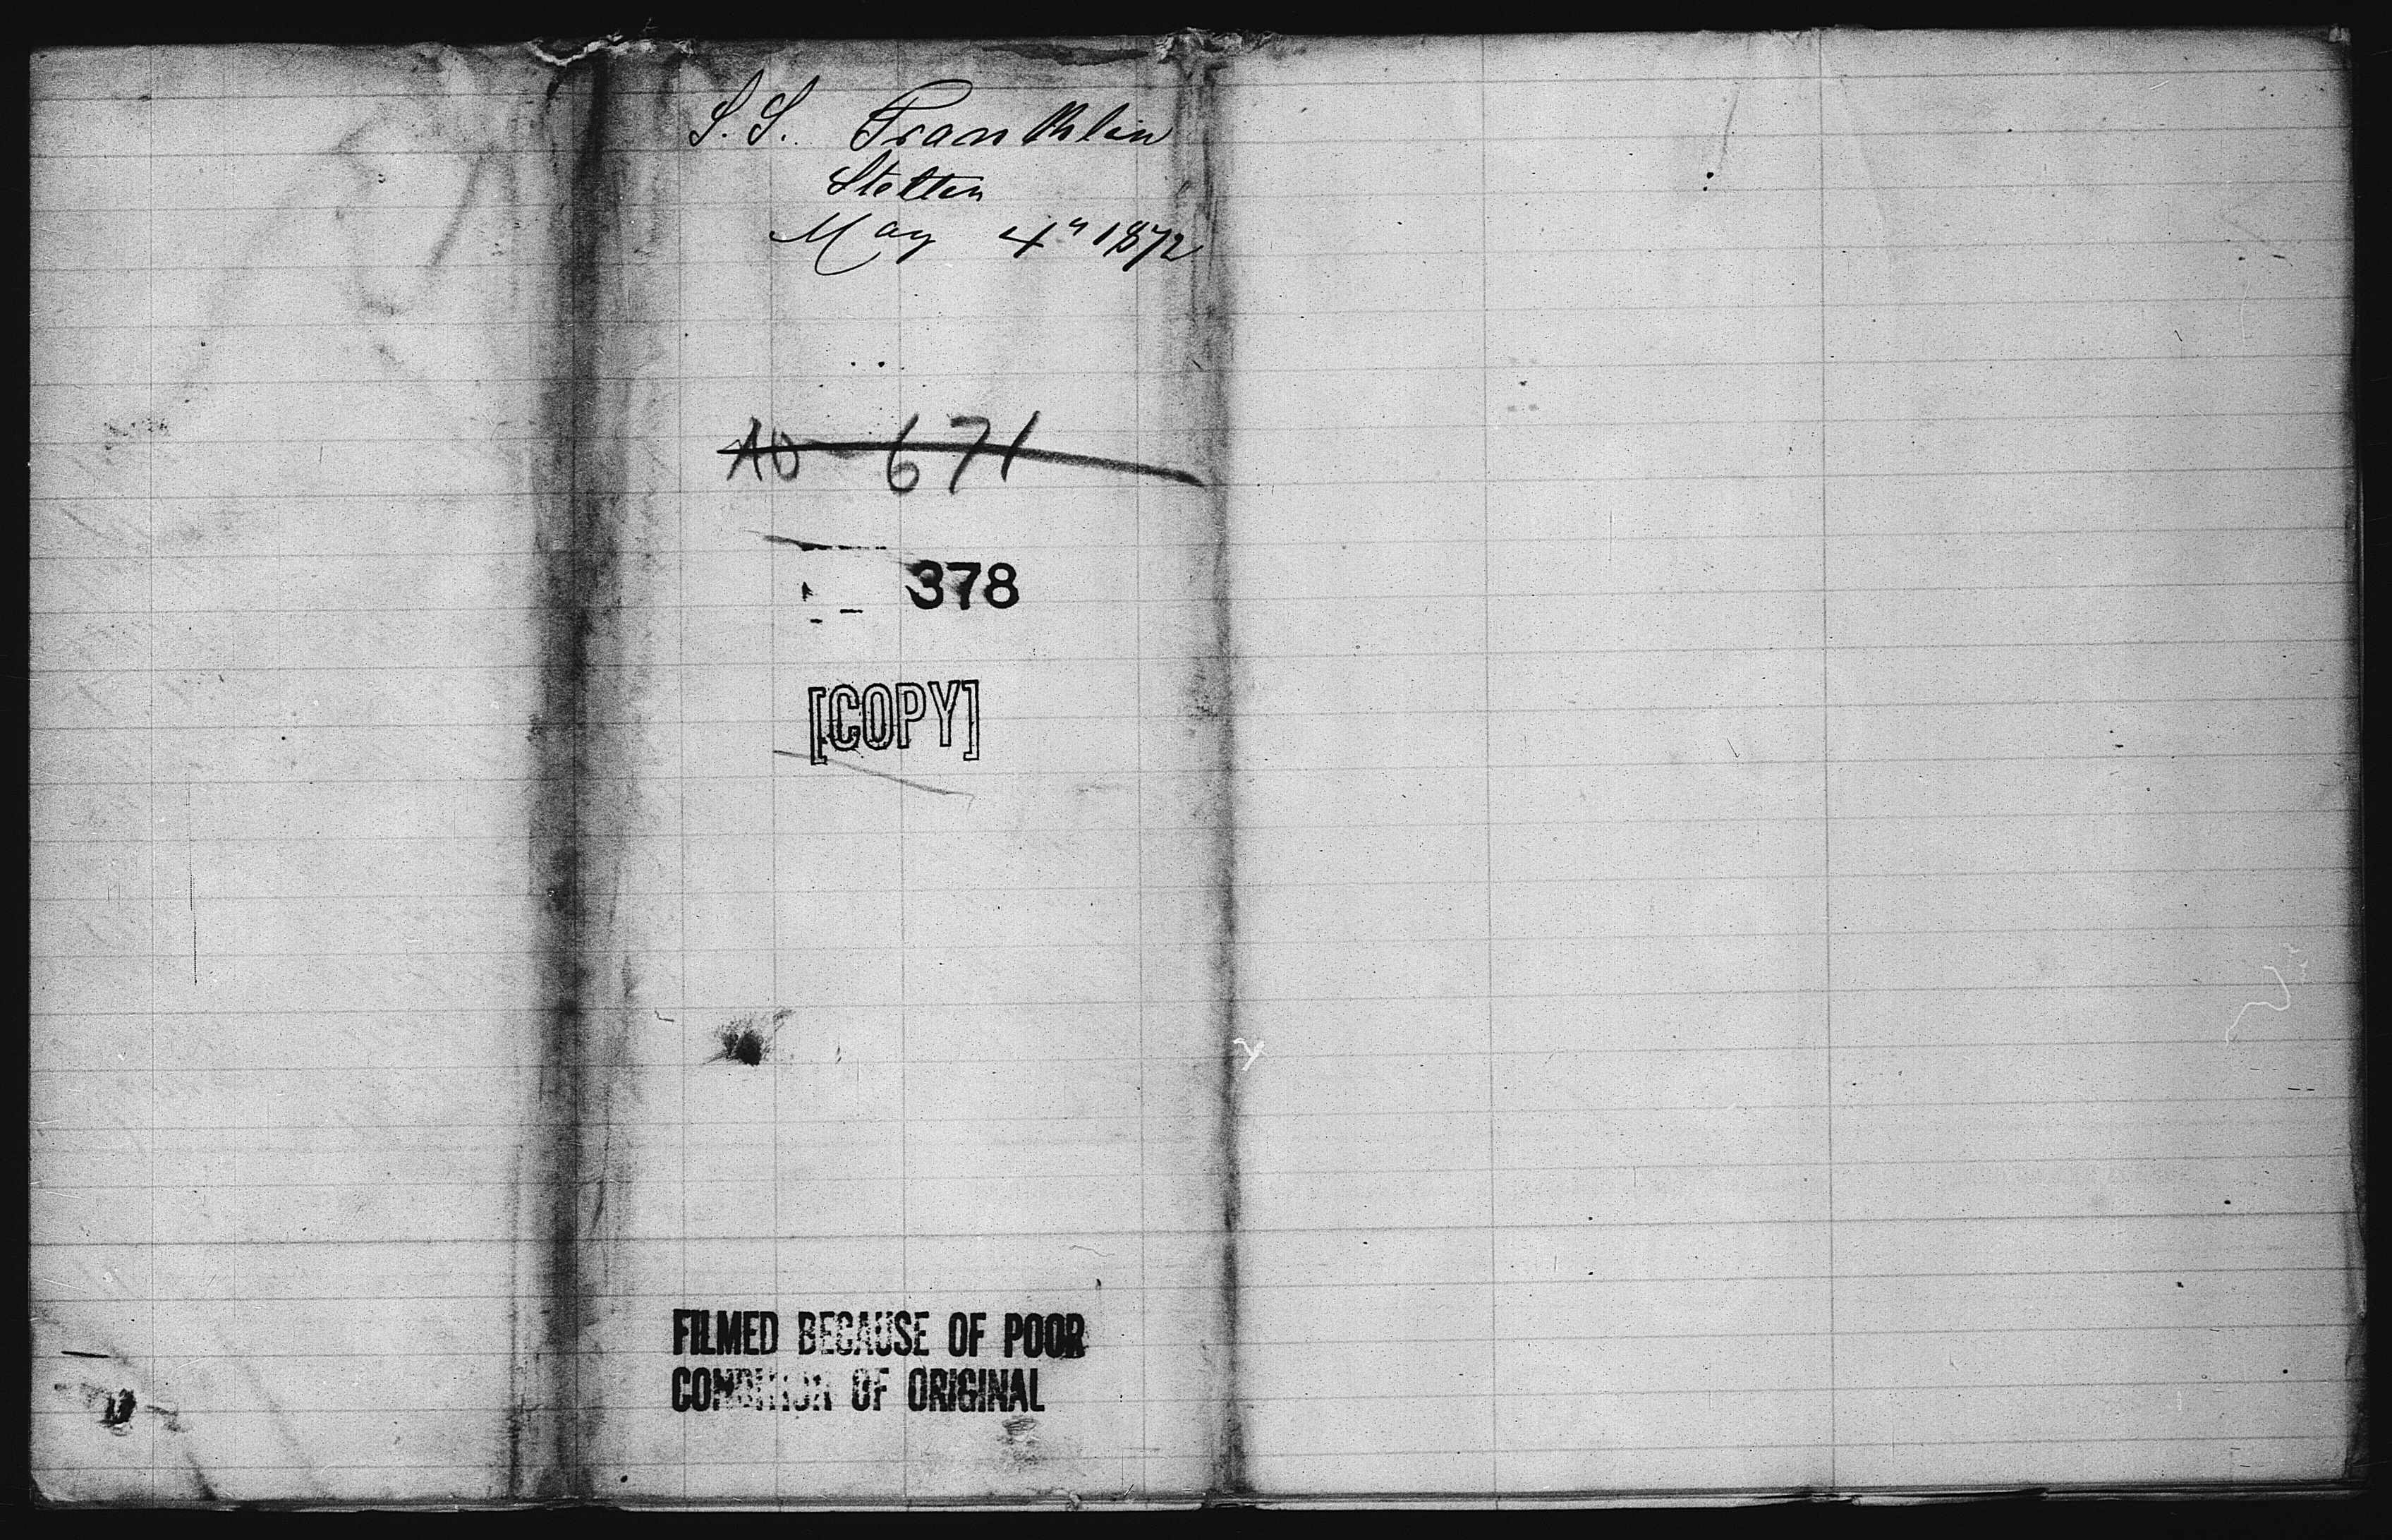 S.S. Franklin
Stettin
May 4" 1872
AD-671
378
[COPY]
FILMED BECAUSE OF POOR
CONDITION OF ORIGINAL